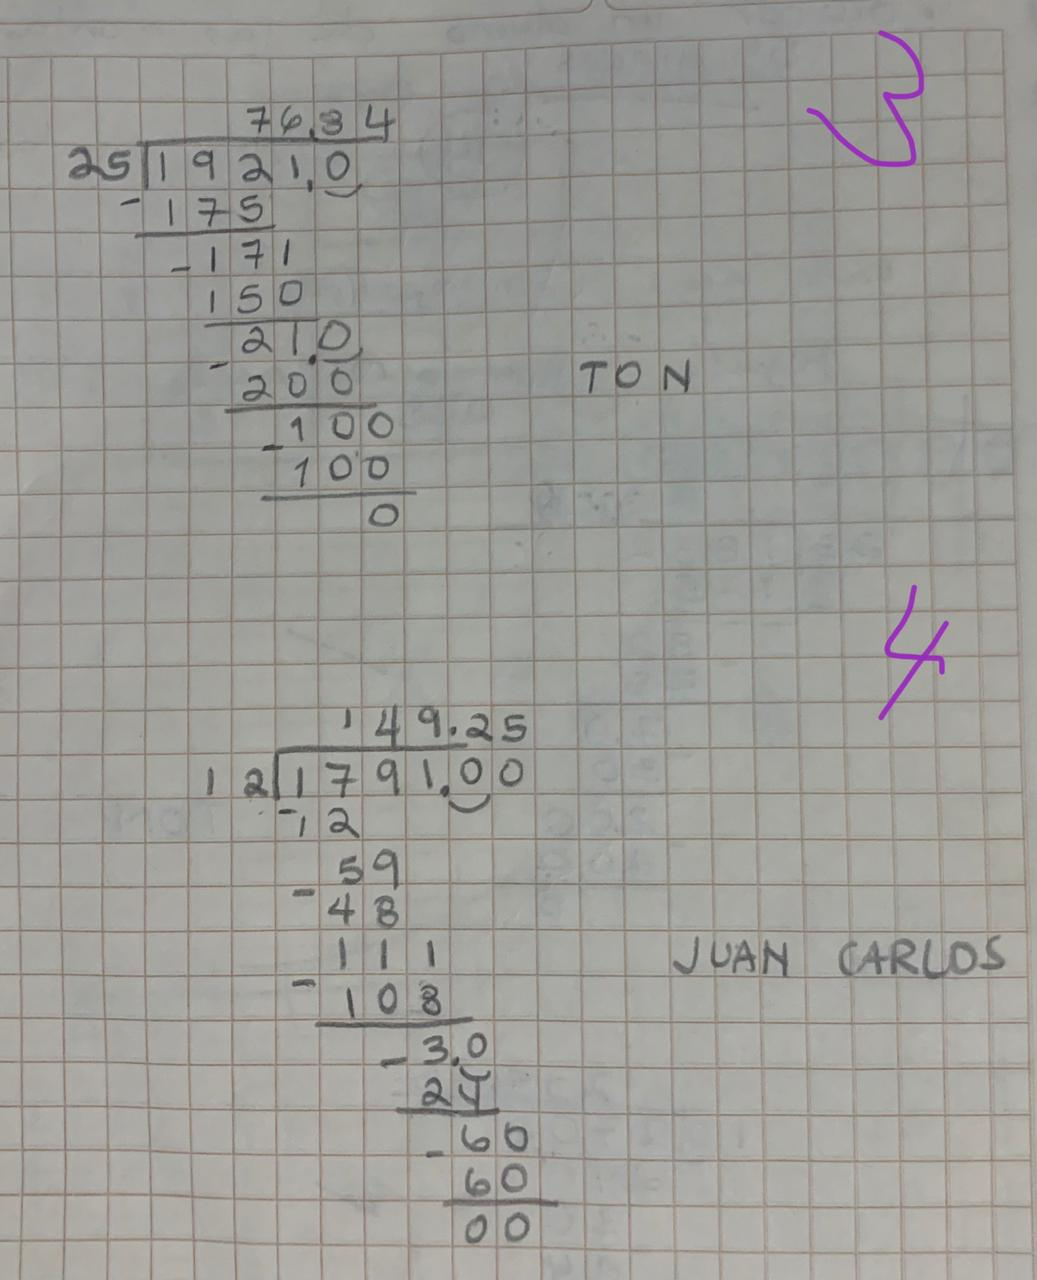 3
76.84
25 1921.0
- 175
- 171
150
21.0
- 200
TON
- 100
100
0
4
149.25
12 1791.00
- 12
59
- 48
111
JUAN CARLOS
- 108
- 3.0
24
- 60
60
00